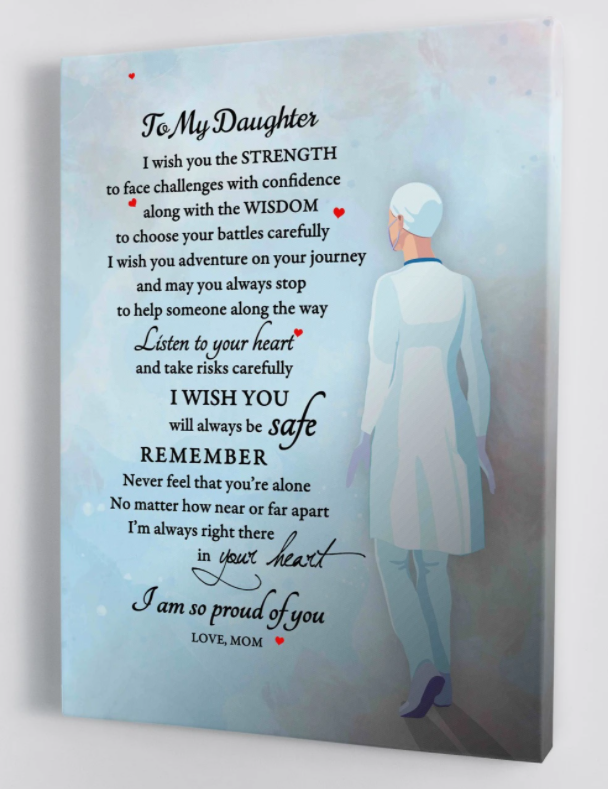 To My Daughter
I wish you the STRENGTH
to face challenges with confidence
along with the WISDOM
to choose your battles carefully
I wish you adventure on your journey
and may you always stop
to help someone along the way
Listen to your heart
and take risks carefully
I WISH YOU
will always be safe
REMEMBER
Never feel that you're alone
No matter how near or far apart
I'm always right there
in your heart
I am so proud of you
LOVE, MOM